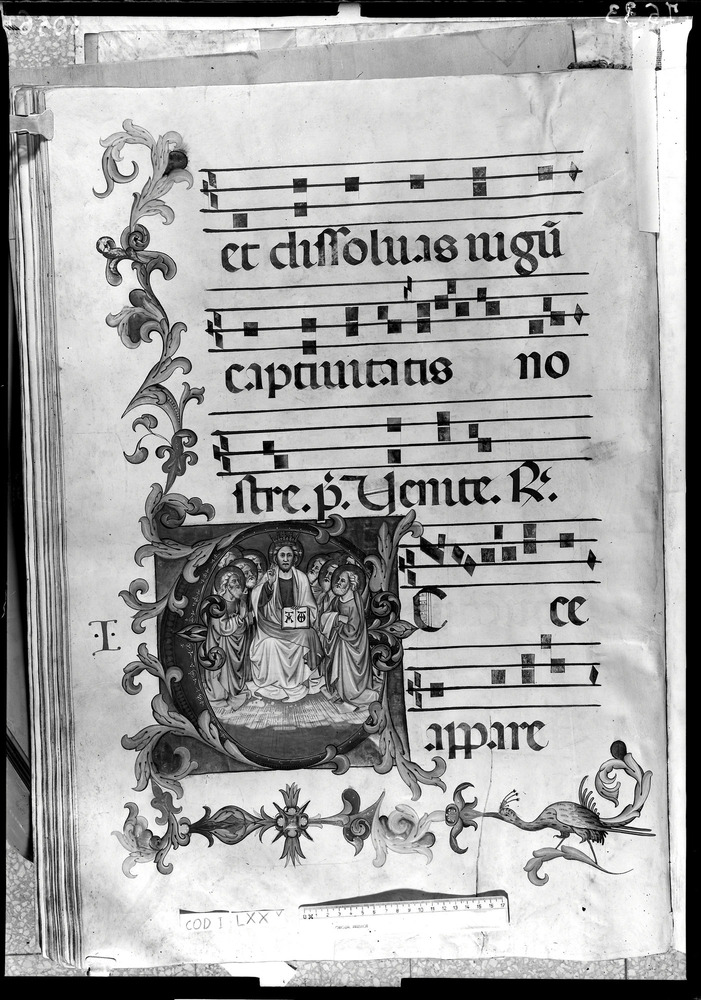 et dissoluas iugū
captiuitatis no
stre. p̄. Uenite. R.
E ce
appare
·I·
COD I LXX